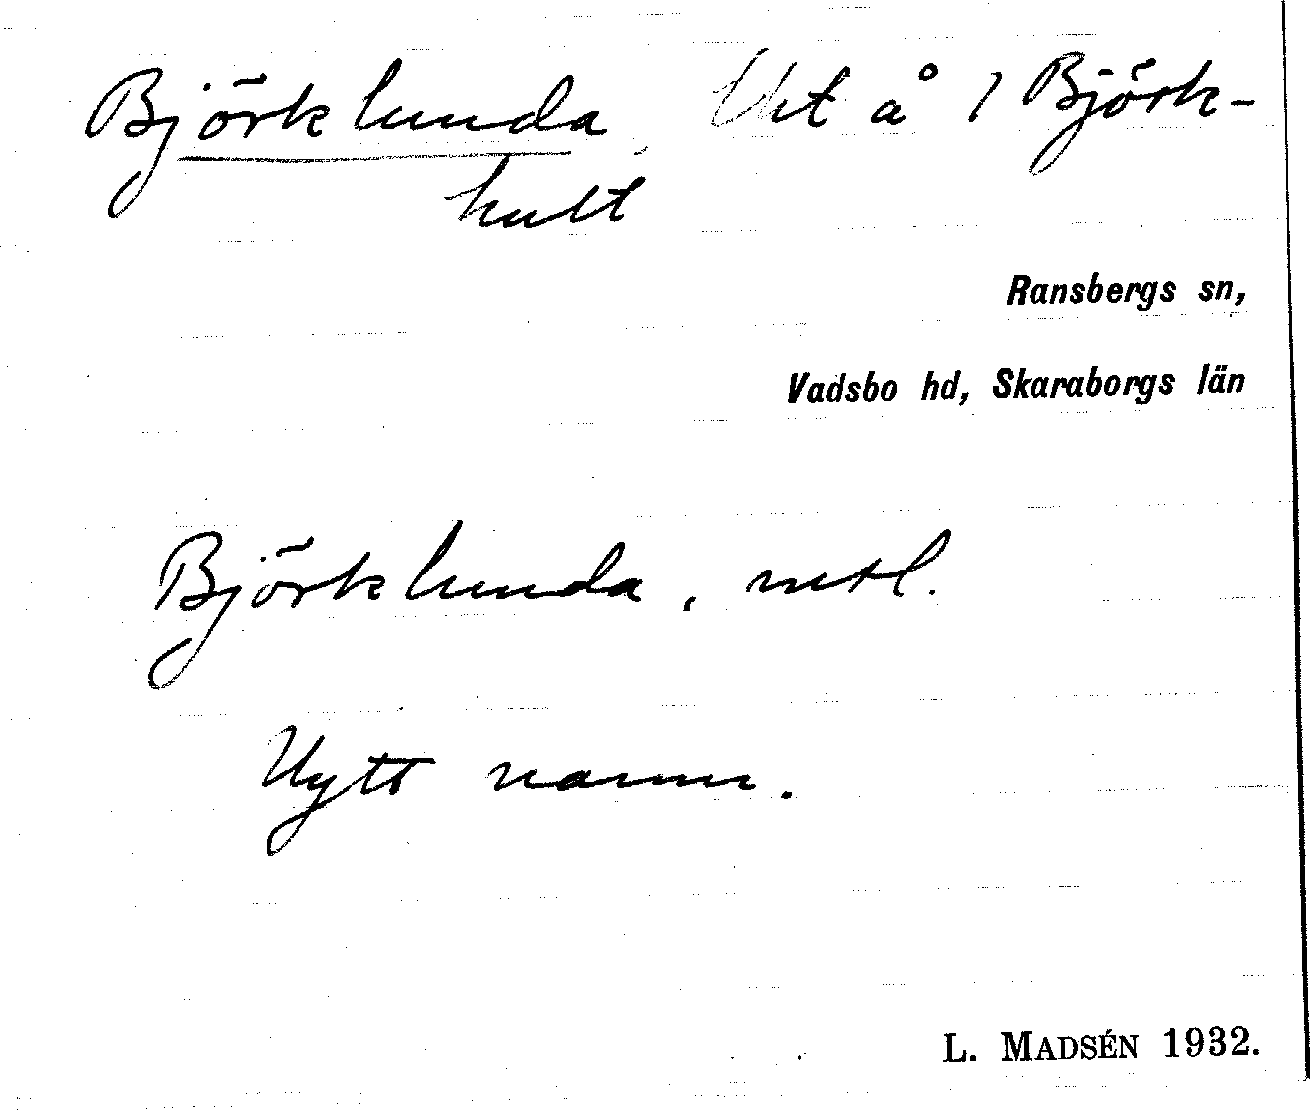 Björklunda, Uht å 1 Björk-
hult
Ransbergs sn,
Vadsbo hd, Skaraborgs län
Björklunda, mtl.
Nytt namn.
L. MADSÉN 1932.